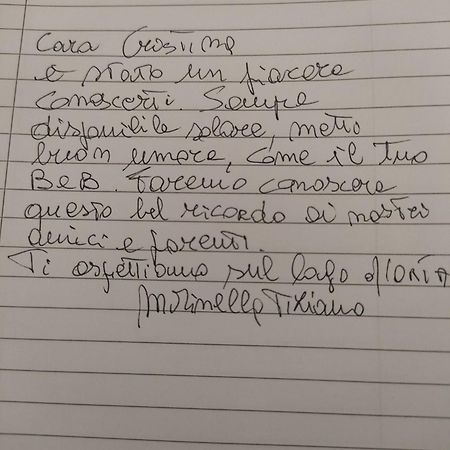 Cara Cristina
è stato un piacere
conoscerti. Sempre
disponibile solare, metto
buon umore, come il tuo
BeB. Faremo conoscere
questo bel ricordo ai nostri
amici e parenti.
Ti aspettiamo sul lago d'Orta
Tiziano